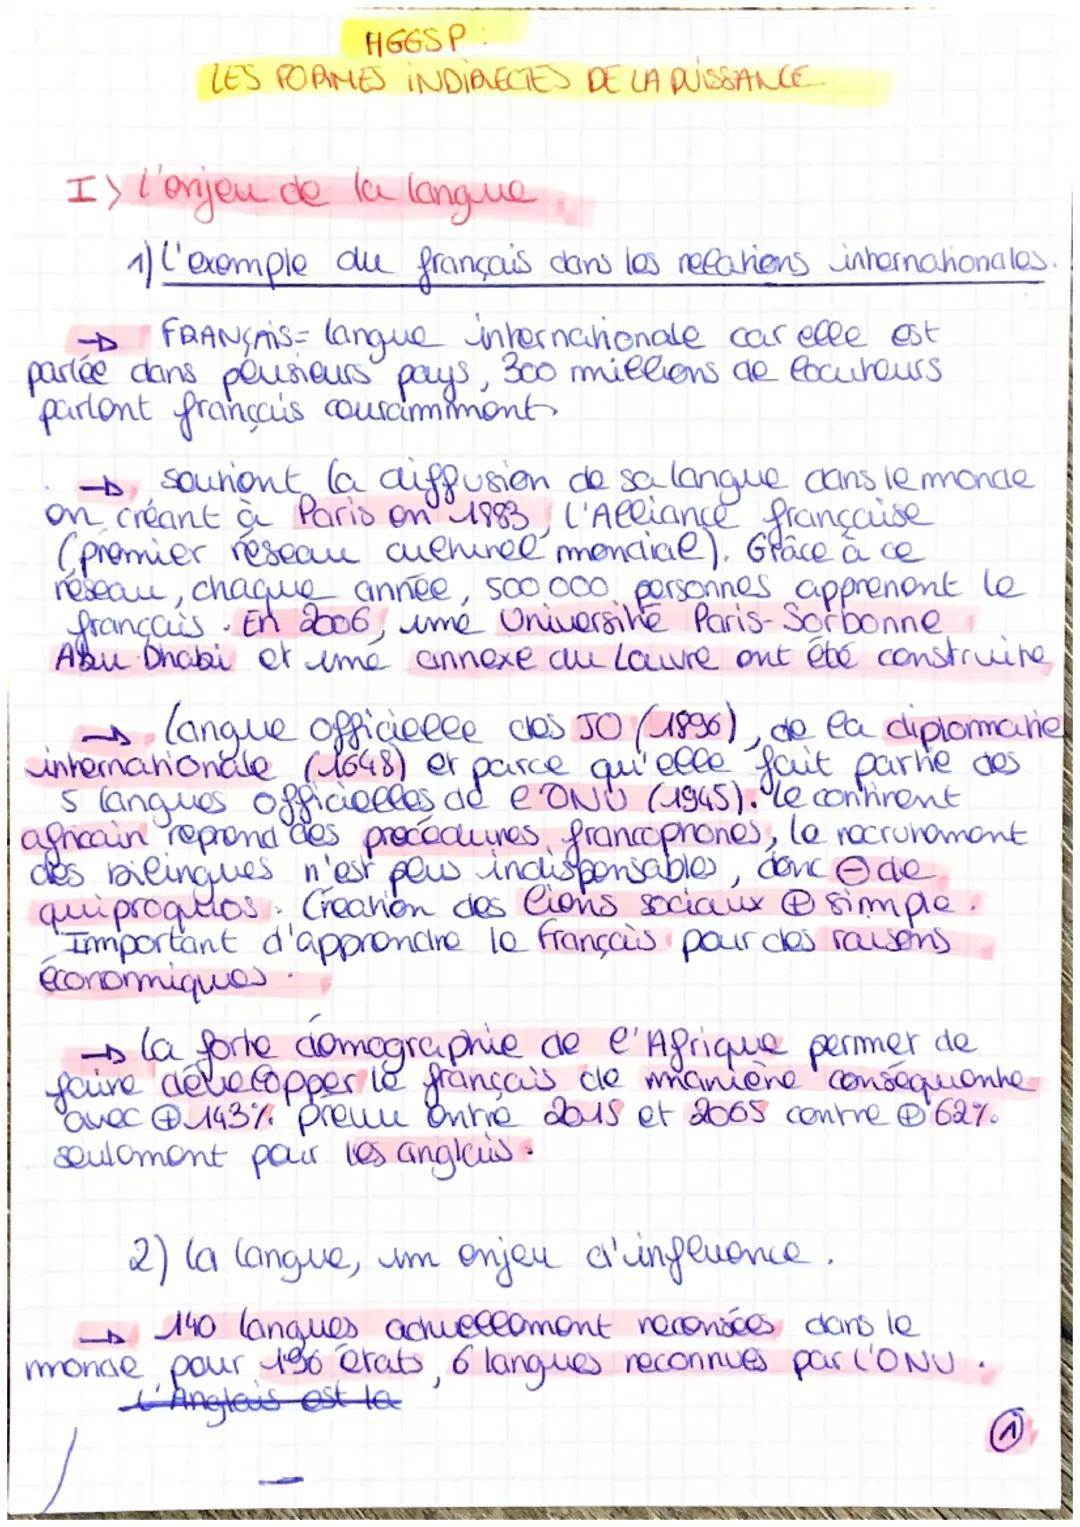 HGGSP :
LES FORMES INDIRECTES DE LA PUISSANCE
I > L'enjeu de la langue
1) L'exemple du français dans les relations internationales.
→ FRANÇAIS= langue internationale car elle est
parlée dans plusieurs pays, 300 millions de locuteurs
parlent français couramment.
→ soutient la diffusion de sa langue dans le monde
en créant à Paris en 1883, l'Alliance française
(premier réseau culturel mondial). Grâce à ce
réseau, chaque année, 500 000 personnes apprenent le
français. En 2006, une Université Paris-Sorbonne
Abu Dhabi et une annexe du Louvre ont été construite
→ langue officielle des JO (1896), de la diplomatie
internationale (1648) et parce qu'elle fait partie des
5 langues officielles de l'ONU (1945). Le continent
africain reprend des procédures francophones, le recrutement
des bilingues n'est plus indispensables, donc ⊖ de
quiproquos. Création des liens sociaux ⊕ simple.
Important d'apprendre le français pour des raisons
économiques.
→ la forte démographie de l'Afrique permet de
faire développer le français de manière conséquente
avec ⊕ 143% prévu entre 2015 et 2065 contre ⊕ 62%
seulement pour les anglais.
2) la langue, un enjeu d'influence.
→ 140 langues actuellement recensées dans le
monde pour 196 états, 6 langues reconnues par l'ONU.
L'Anglais est la
1